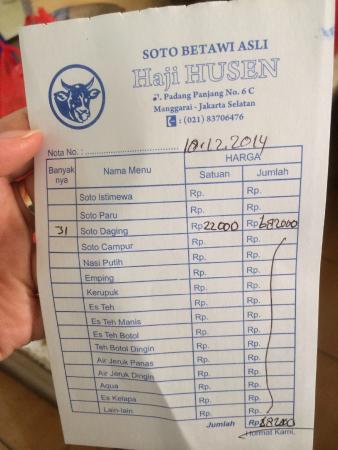 SOTO BETAWI ASLI
Haji HUSEN
Jl. Padang Panjang No. 6 C
Manggarai - Jakarta Selatan
: (021) 83706476
Nota No. : 10.12.2014
Banyak nya Nama Menu HARGA
Satuan Jumlah
Soto Istimewa Rp. Rp.
Soto Paru Rp. Rp.
31 Soto Daging Rp 22000 Rp 682000
Soto Campur Rp. Rp.
Nasi Putih Rp. Rp.
Emping Rp. Rp.
Kerupuk Rp. Rp.
Es Teh Rp. Rp.
Es Teh Manis Rp. Rp.
Es Teh Botol Rp. Rp.
Teh Botol Dingin Rp. Rp.
Air Jeruk Panas Rp. Rp.
Air Jeruk Dingin Rp. Rp.
Aqua Rp. Rp.
Es Kelapa Rp. Rp.
Lain-lain Rp. Rp.
Jumlah Rp. 682000
Hormat Kami,